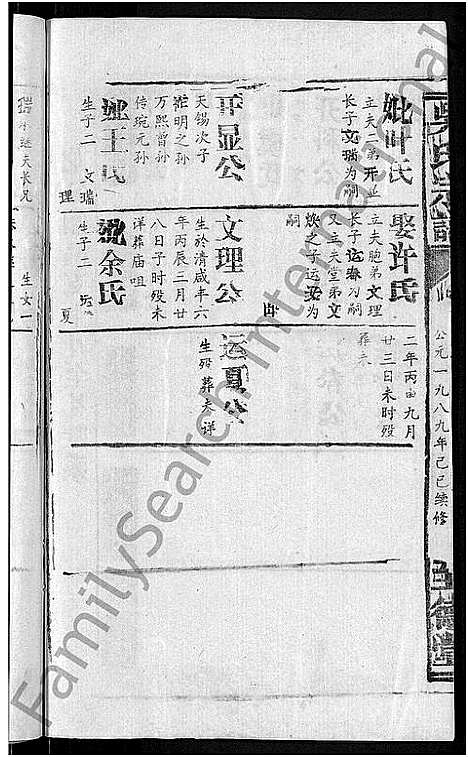 公元一九八九年己巳续修
妣叶氏
立夫二弟开显
长子文瑞为嗣
开显公
天锡次子
在明之孙
万熙曾孙
传琬元孙
妣王氏
生子二 文瑞
理
娶许氏
立夫胞弟文理
长子运春为嗣
又立夫堂弟文
焕之子运安为
嗣
文理公
生於清咸丰六
年丙辰二月廿
八日子时殁未
详葬庙咀
妣余氏
生子二
夏
二年丙申九月
廿三日未时殁
葬未
运夏公
生殁葬失详
生女一
FamilySearch International